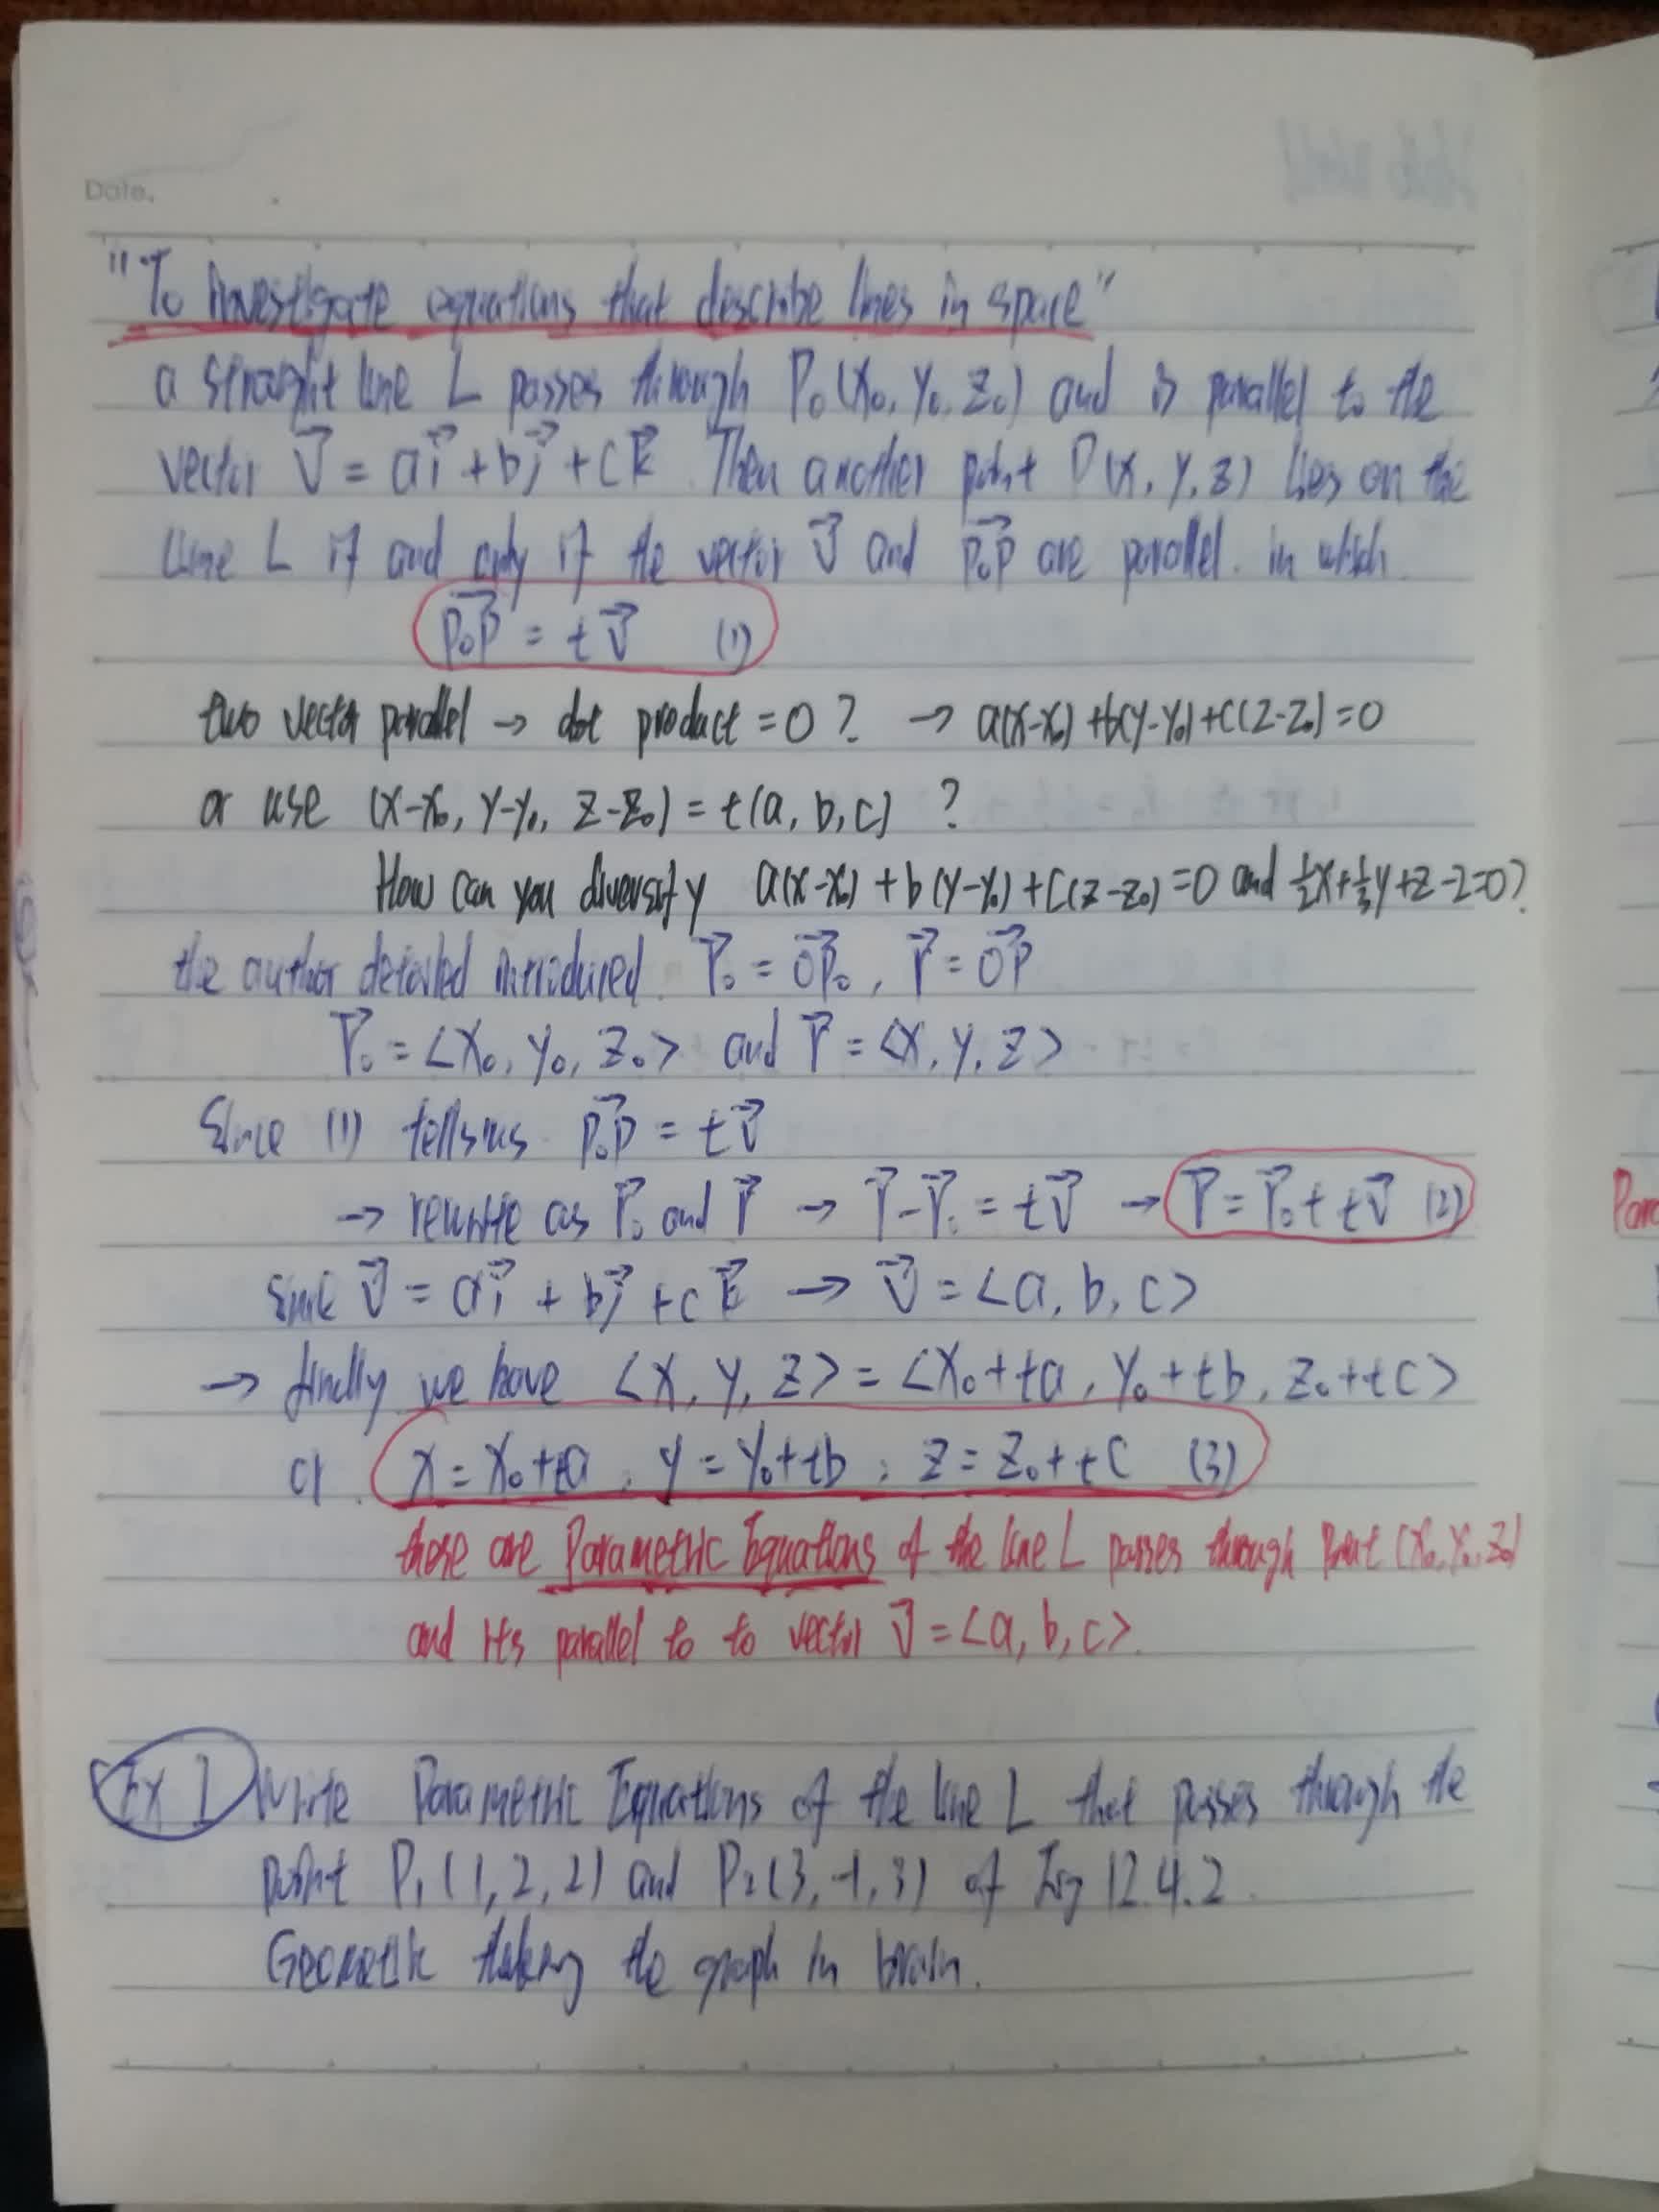 Date.
"To investigate equations that describe lines in space"
a straight line L passes through P₀(x₀, y₀, z₀) and is parallel to the
vector v⃗ = ai⃗ + bj⃗ + ck⃗. Then another point P(x, y, z) lies on the
line L if and only if the vector v⃗ and P₀P⃗ are parallel. in which
P₀P⃗ = tv⃗ (1)
two vector parallel → dot product = 0 ? → a(x-x₀) + b(y-y₀) + c(z-z₀) = 0
or use (x-x₀, y-y₀, z-z₀) = t(a, b, c) ?
How can you diversify a(x-x₀) + b(y-y₀) + c(z-z₀) = 0 and ½x + ⅓y + z - 2 = 0?
the author detailed introduced. r⃗₀ = OP⃗₀, r⃗ = OP⃗
r⃗₀ = <x₀, y₀, z₀> and r⃗ = <x, y, z>
Since (1) tells us P₀P⃗ = tv⃗
→ rewrite as r⃗₀ and r⃗ → r⃗ - r⃗₀ = tv⃗ → r⃗ = r⃗₀ + tv⃗ (2)
Since v⃗ = ai⃗ + bj⃗ + ck⃗ → v⃗ = <a, b, c>
→ finally we have <x, y, z> = <x₀ + ta, y₀ + tb, z₀ + tc>
or. x = x₀ + ta, y = y₀ + tb, z = z₀ + tc (3)
these are Parametric Equations of the line L passes through point (x₀, y₀, z₀)
and its parallel to to vector v⃗ = <a, b, c>.
Ex 1 Write Parametric Equations of the line L that passes through the
point P₁(1, 2, 2) and P₂(3, -1, 3) of Fig 12.4.2.
the graph in brain.